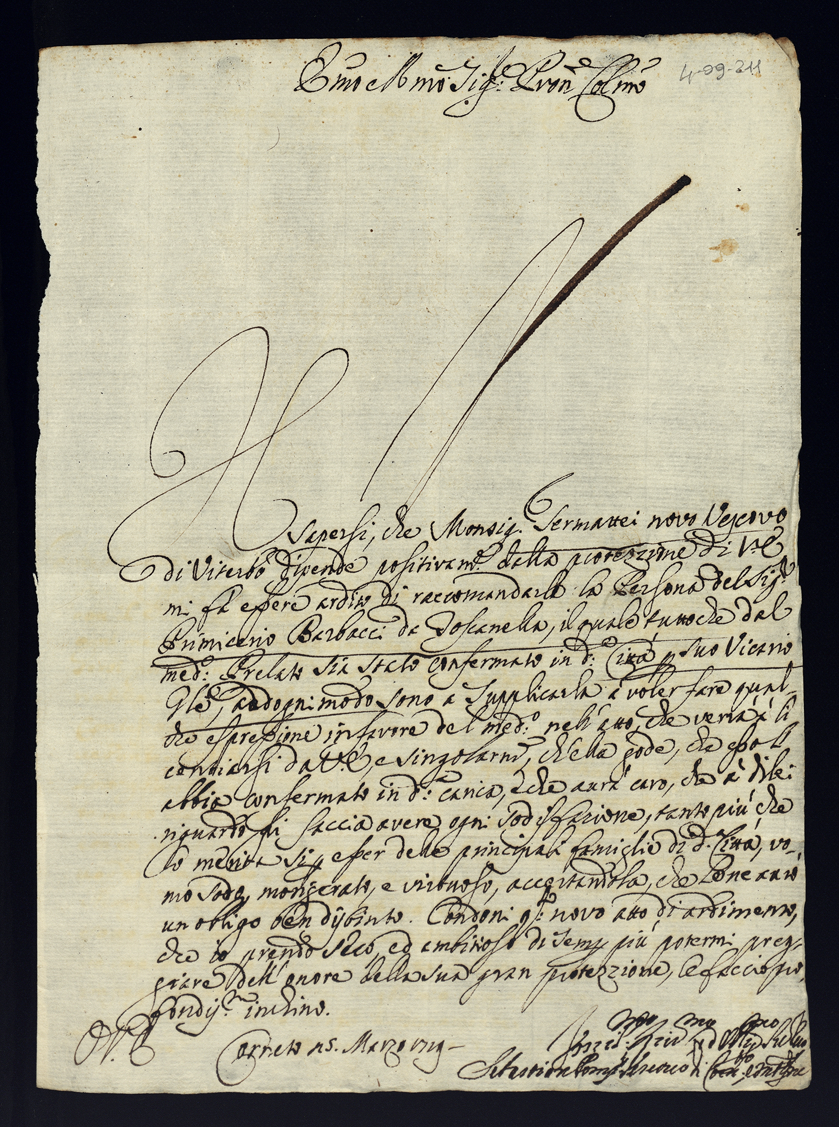 Emo e Rmo Sig.re Pron Colmo
4-09-211
Il sapersi, che Monsig.r Sermattei novo Vescovo
di Viterbo dipende positivam.e dalla protezzione di V.E.
mi fà essere ardito di raccomandarle la Persona del Sig.r
Primicerio Barbacci da Toscanella, il quale tutto che dal
med.o Prelato sia stato confermato in d.a Città p suo Vicario
Gle, ad ogni modo sono a supplicarla à voler fare qual-
che espressione in favore del med.o nell'atto, che verrà à li
cenziarsi da V.E, e singolarm.e, ch'ella gode, che esso l'
abbia confermato in d.a carica, e che avrà caro, che à di lei
riguardo gli faccia avere ogni sodisfazione, tanto più che
lo merita sì p esser delle principali famiglie di d.a Città, vo-
mo sodo, mongerato, e virtuoso, accertandola, che le ne avrò
un obligo ben distinto. Condoni q.o novo atto di ardimento,
che io prendo seco, ed ambitioso di semp più potermi preg-
giare dell'onore della sua gran protezzione, le faccio pro-
fondis.mo inchino.
D. V. E.
Corneto 15. Marzo 1719